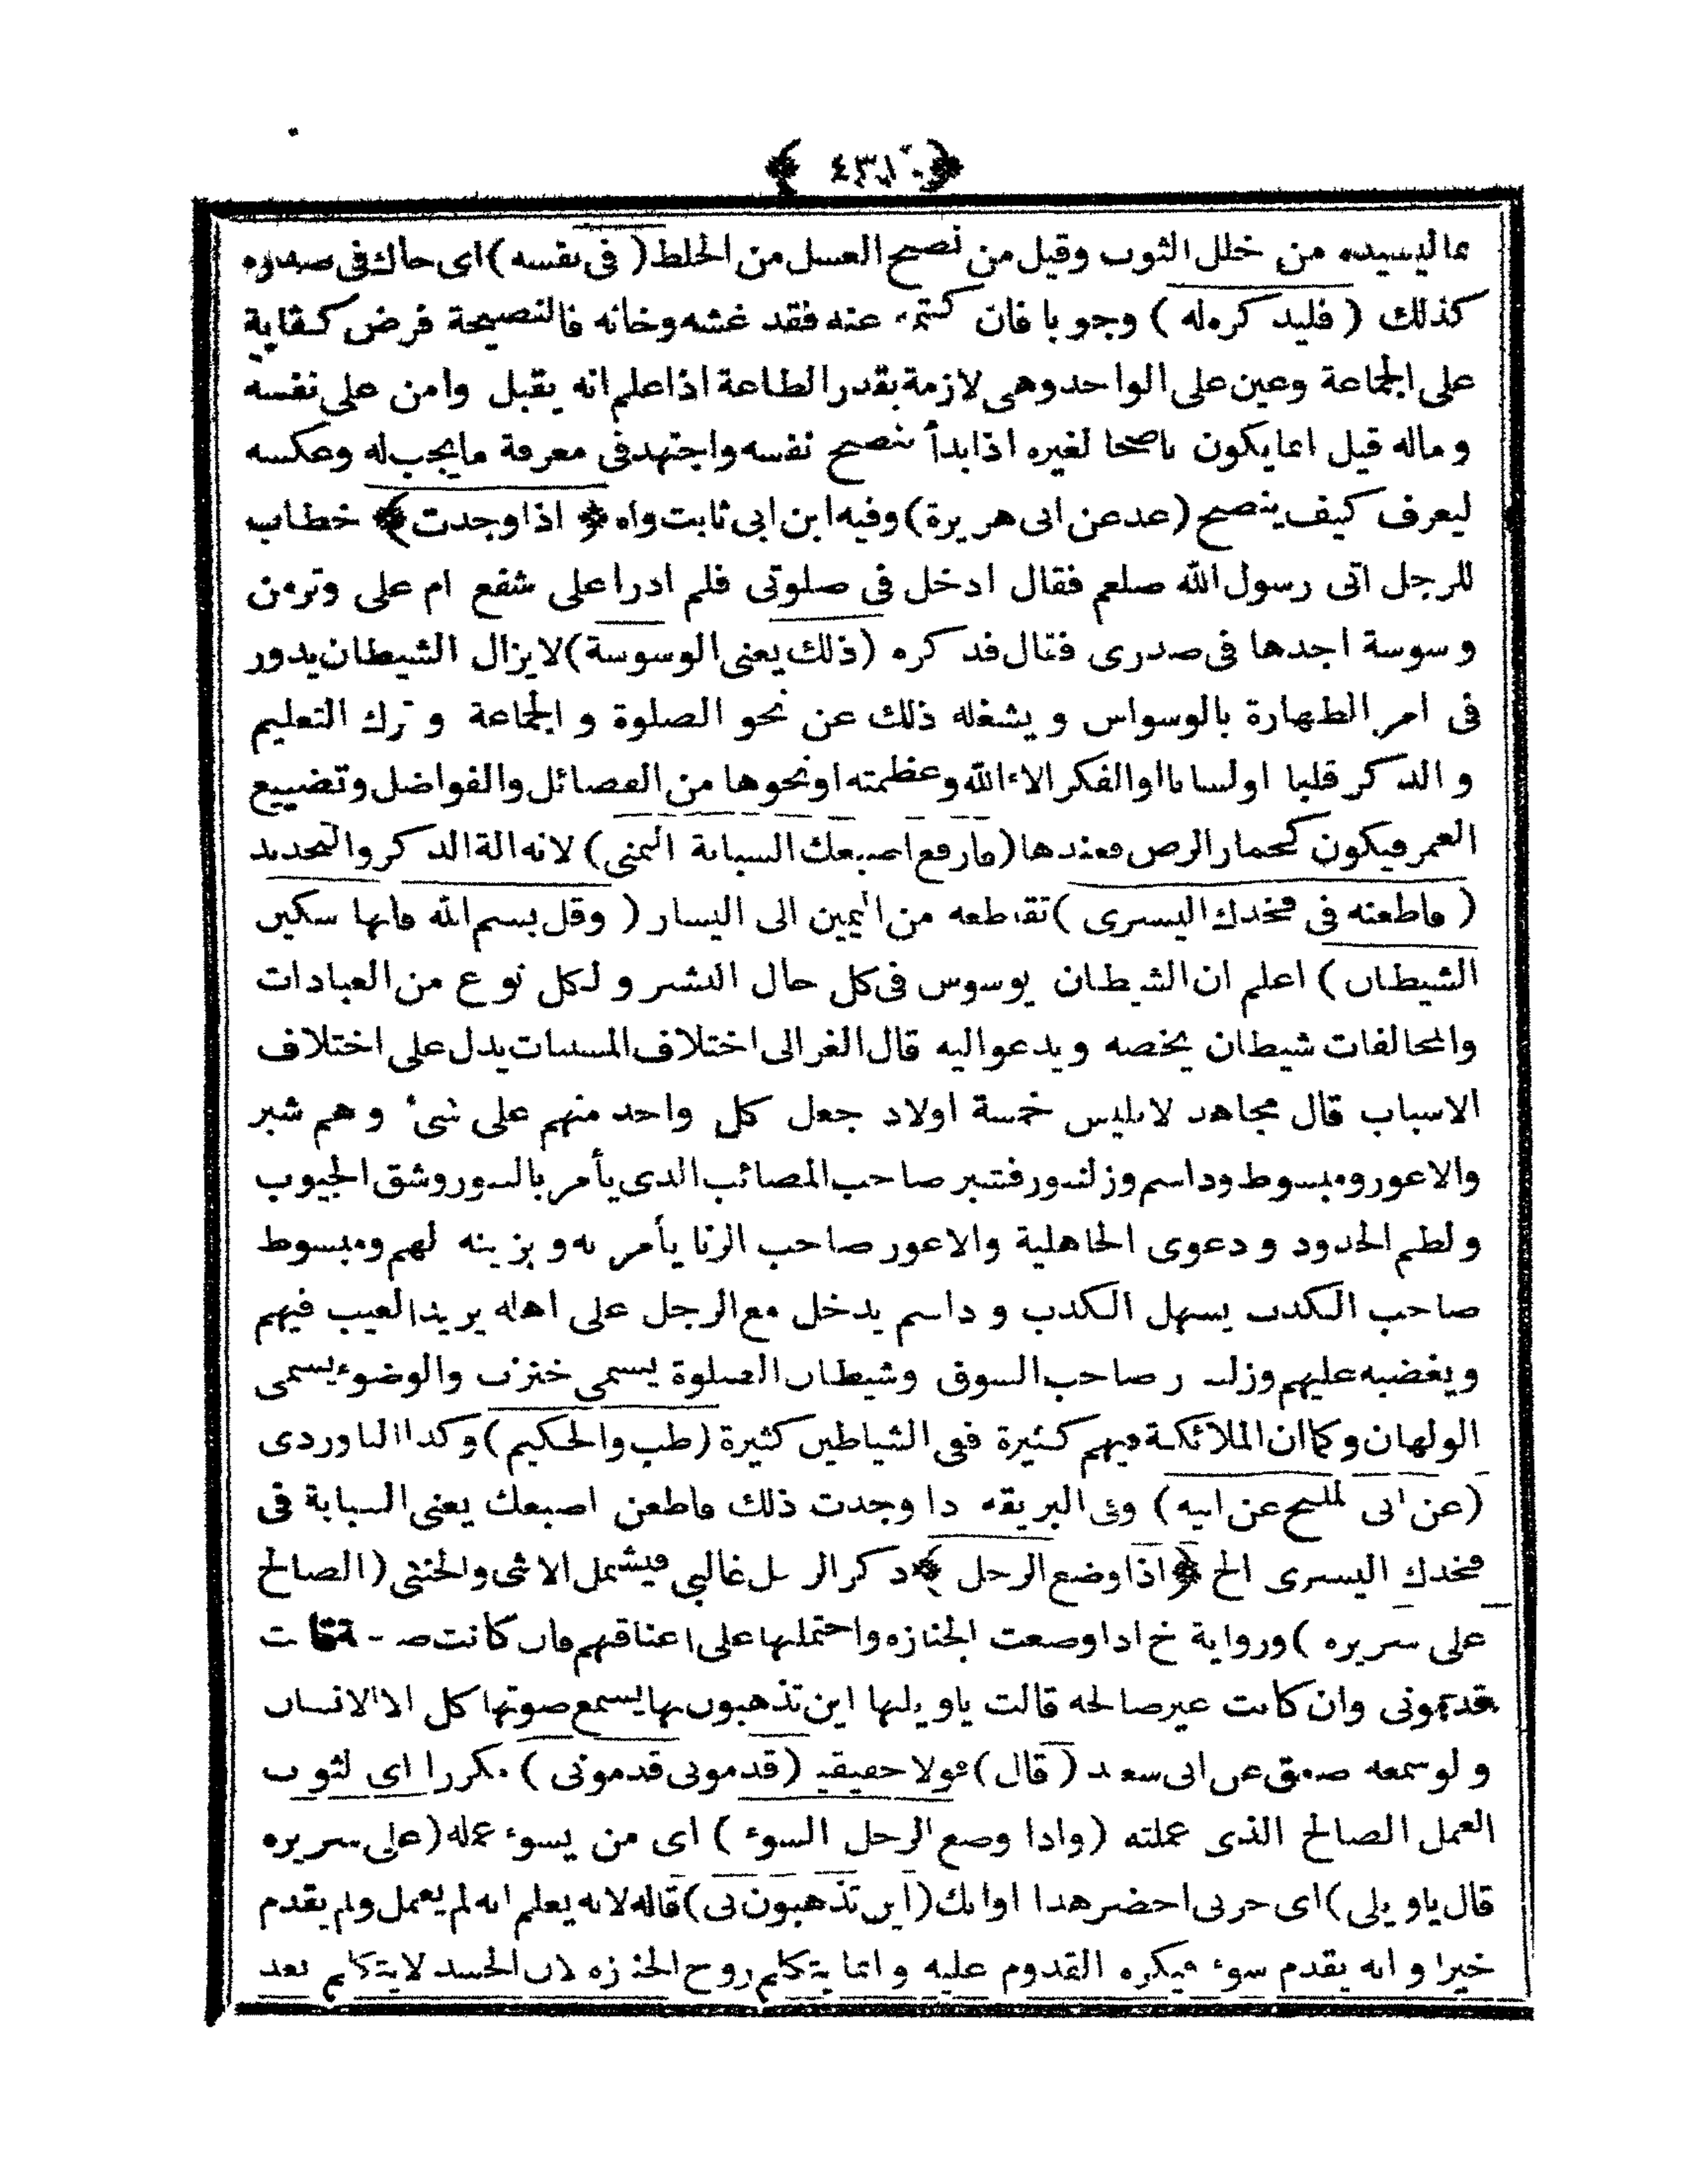 ﴿ ٤٣٠ ﴾
من خلل الثوب وقيل من نصح العسل من الخلط ( فى نفسه ) اى حاك فى صدره
كذلك ( فليذكره له ) وجوبا فان كتمه عنه فقد غشه وخانه فالنصيحة فرض كفاية
على الجماعة وعين على الواحد وهى لازمة بقدر الطاعة اذا علم انه يقبل وامن على نفسه
وماله قيل انما يكون ناصحا لغيره اذا بدأ نصح نفسه واجتهد فى معرفة ما يجب له وعكسه
ليعرف كيف ينصح ( عد عن ابى هريرة ) وفيه ابن ابى ثابت واه ﴿ اذا وجدت ﴾ خطاب
للرجل اتى رسول الله صلعم فقال ادخل فى صلوتى فلم ادر اعلى شفع ام على وتر من
وسوسة اجدها فى صدرى فقال فذكره ( ذلك يعنى الوسوسة ) لا يزال الشيطان يدور
فى امر الطهارة بالوسواس و يشغله ذلك عن نحو الصلوة و الجماعة و ترك التعليم
و الذكر قلبا او لسانا او الفكر الاء الله وعظمته او نحوها من الفضائل والفواضل وتضييع
العمر فيكون كحمار الرحى فعندها ( فارفع اصبعك السبابة اليمنى ) لانه الة الذكر والتحديد
( فاطعنه فى فخذك اليسرى ) تقاطعه من اليمين الى اليسار ( وقل بسم الله فانها سكين
الشيطان ) اعلم ان الشيطان يوسوس فى كل حال البشر و لكل نوع من العبادات
والمخالفات شيطان يخصه و يدعو اليه قال الغزالى اختلاف المسببات يدل على اختلاف
الاسباب قال مجاهد لابليس خمسة اولاد جعل كل واحد منهم على شئ وهم شبر
والاعور ومبسوط وداسم وزلنبور فثبر صاحب المصائب الذى يأمر بالثبور وشق الجيوب
و لطم الخدود و دعوى الجاهلية والاعور صاحب الزنا يأمر به و يزينه لهم ومبسوط
صاحب الكذب يسهل الكذب و داسم يدخل مع الرجل على اهله يريد العيب فيهم
و يغضبه عليهم وزلنبور صاحب السوق وشيطان الصلوة يسمى خنزب والوضوء يسمى
الولهان وكما ان الملائكة فيهم كثيرة ففى الشياطين كثيرة ( طب والحكيم ) وكذا الباوردى
( عن ابى المليح عن ابيه ) وفى البريقة اذا وجدت ذلك فاطعن اصبعك يعنى السبابة فى
فخذك اليسرى الخ ﴿ اذا وضع الرجل ﴾ ذكر الرجل غالبى فيشمل الانثى والخنثى ( الصالح
على سريره ) ورواية خ اذا وضعت الجنازة واحتملها على اعناقهم فان كانت صالحة قالت
قدمونى وان كانت غير صالحة قالت ياويلها اين تذهبون بها يسمع صوتها كل الا الانسان
و لو سمعه صعق عن ابى سعيد ( قال ) قولا حقيقيا ( قدمونى قدمونى ) مكررا اى لثوب
العمل الصالح الذى عملته ( واذا وضع الرجل السوء ) اى من يسوء عمله ( على سريره
قال ياويلى ) اى حزنى احضر هذا اوانك ( اين تذهبون بى ) قاله لانه يعلم انه لم يعمل ولم يقدم
خيرا و انه يقدم سوء فيكره القدوم عليه و انما يتكلم روح الجنازه لان الجسد لا يتكلم بعد